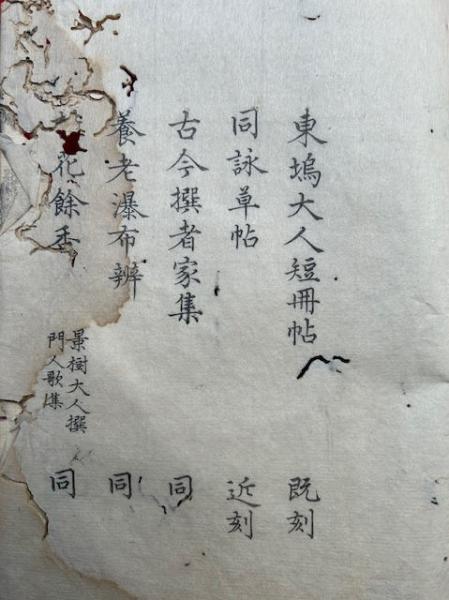 東塢大人短冊帖 既刻
同詠草帖 近刻
古今撰者家集 同
養老瀑布辨 同
花餘香 景樹大人撰 門人歌集 同